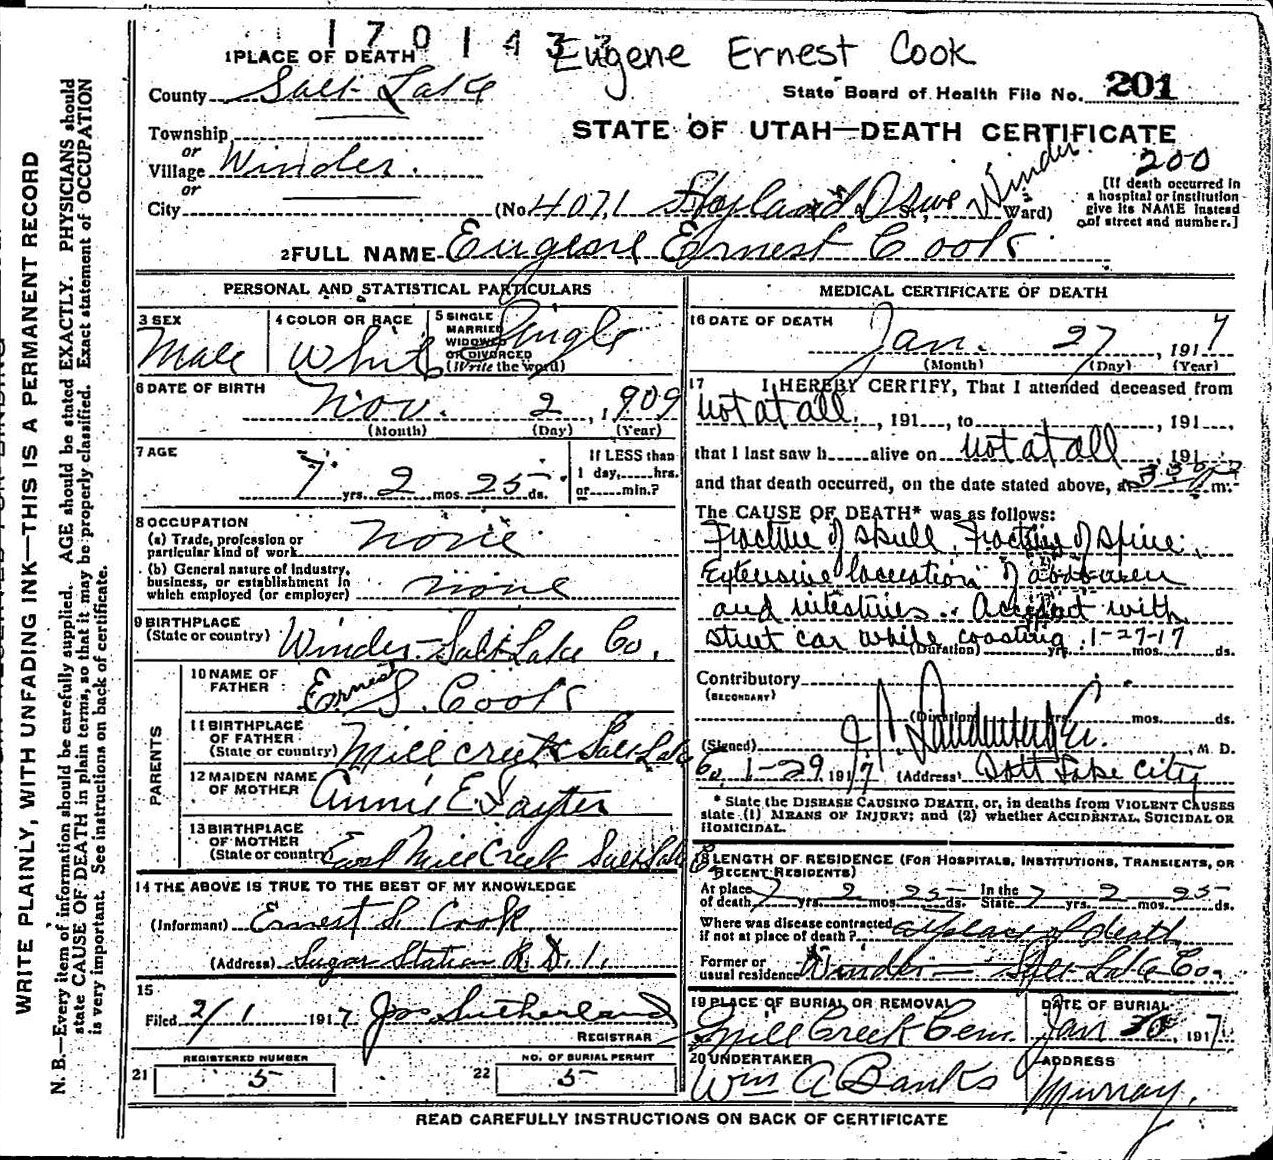 170143
Eugene Ernest Cook
1 PLACE OF DEATH
County Salt Lake
State Board of Health File No. 201
Township
STATE OF UTAH—DEATH CERTIFICATE
or
Village Winder.
200
or
City
(No. 4071 Highland Drive St., Winder Ward)
[If death occurred in a hospital or institution give its NAME instead of street and number.]
2 FULL NAME Eugene Ernest Cook
PERSONAL AND STATISTICAL PARTICULARS
3 SEX Male
4 COLOR OR RACE White
5 SINGLE MARRIED WIDOWED OR DIVORCED (Write the word) Single
6 DATE OF BIRTH Nov. 2, 1909
(Month) (Day) (Year)
7 AGE 7 yrs. 2 mos. 25 ds.
If LESS than 1 day, hrs. or min.?
8 OCCUPATION
(a) Trade, profession or particular kind of work none
(b) General nature of industry, business, or establishment in which employed (or employer) none
9 BIRTHPLACE (State or country) Winder-Salt Lake Co.
PARENTS
10 NAME OF FATHER Ernest S. Cook
11 BIRTHPLACE OF FATHER (State or country) Mill creek Salt Lake Co.
12 MAIDEN NAME OF MOTHER Annie E.
13 BIRTHPLACE OF MOTHER (State or country) East Mill Creek Salt Lake Co
14 THE ABOVE IS TRUE TO THE BEST OF MY KNOWLEDGE
(Informant) Ernest S. Cook
(Address) Sugar Station R.D. 1.
15
Filed 2/1 1917 Jos Sutherland
REGISTRAR
REGISTERED NUMBER
21 5
NO. OF BURIAL PERMIT
22 5
MEDICAL CERTIFICATE OF DEATH
16 DATE OF DEATH
Jan. 27, 1917
(Month) (Day) (Year)
17 I HEREBY CERTIFY, That I attended deceased from
not at all, 191, to, 191,
that I last saw h alive on not at all, 191
and that death occurred, on the date stated above, at m.
The CAUSE OF DEATH* was as follows:
Fracture of skull, Fracture of spine,
Extensive laceration of abdomen
and intestines. Accident with
street car while coasting. 1-27-17
(Duration) yrs. mos. ds.
Contributory
(SECONDARY)
(Duration) yrs. mos. ds.
(Signed) M. D.
1-29 1917 (Address) Salt Lake City
* State the DISEASE CAUSING DEATH, or, in deaths from VIOLENT CAUSES
state (1) MEANS OF INJURY; and (2) whether ACCIDENTAL, SUICIDAL OR
HOMICIDAL.
18 LENGTH OF RESIDENCE (FOR HOSPITALS, INSTITUTIONS, TRANSIENTS, OR
RECENT RESIDENTS)
At place of death 7 yrs. 2 mos. 25 ds. In the State 7 yrs. 2 mos. 25 ds.
Where was disease contracted if not at place of death? at place of death
Former or usual residence Winder — Salt Lake Co.
19 PLACE OF BURIAL OR REMOVAL Mill Creek Cem.
DATE OF BURIAL Jan 30, 1917
20 UNDERTAKER Wm A Banks
ADDRESS Murray.
READ CAREFULLY INSTRUCTIONS ON BACK OF CERTIFICATE
WRITE PLAINLY, WITH UNFADING INK—THIS IS A PERMANENT RECORD
N. B.—Every item of information should be carefully supplied. AGE should be stated EXACTLY. PHYSICIANS should
state CAUSE OF DEATH in plain terms, so that it may be properly classified. Exact statement of OCCUPATION
is very important. See instructions on back of certificate.